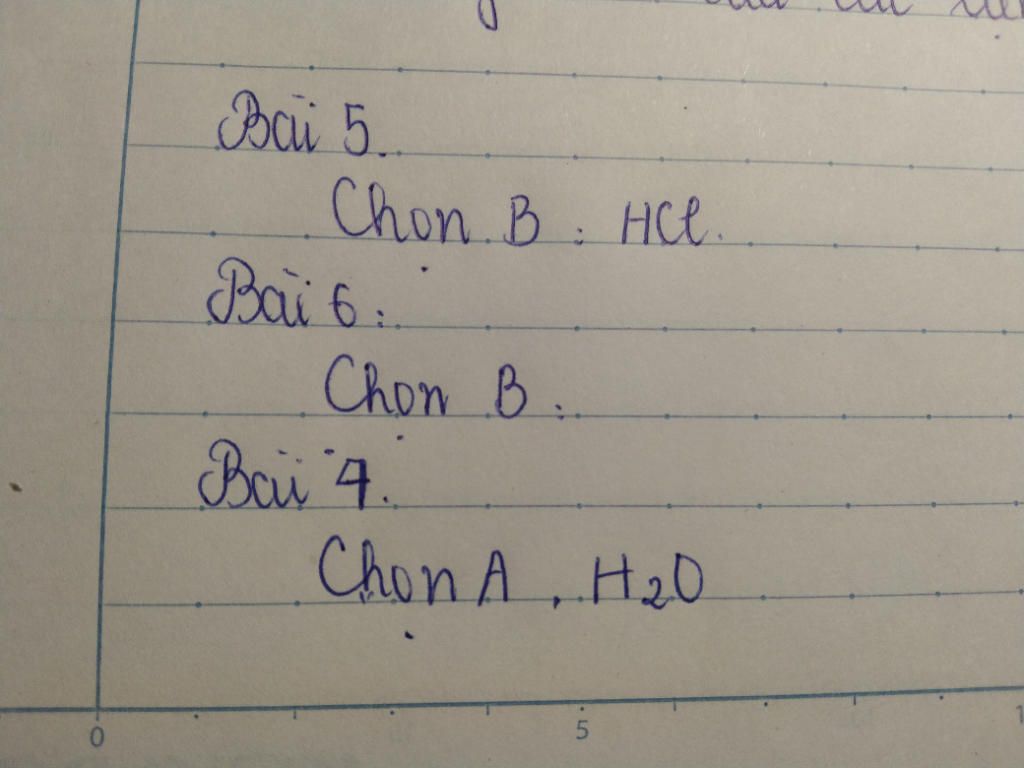 Bài 5.
Chọn B : HCl.
Bài 6 :
Chọn B :
Bài 7.
Chọn A . H₂O
0 5 1